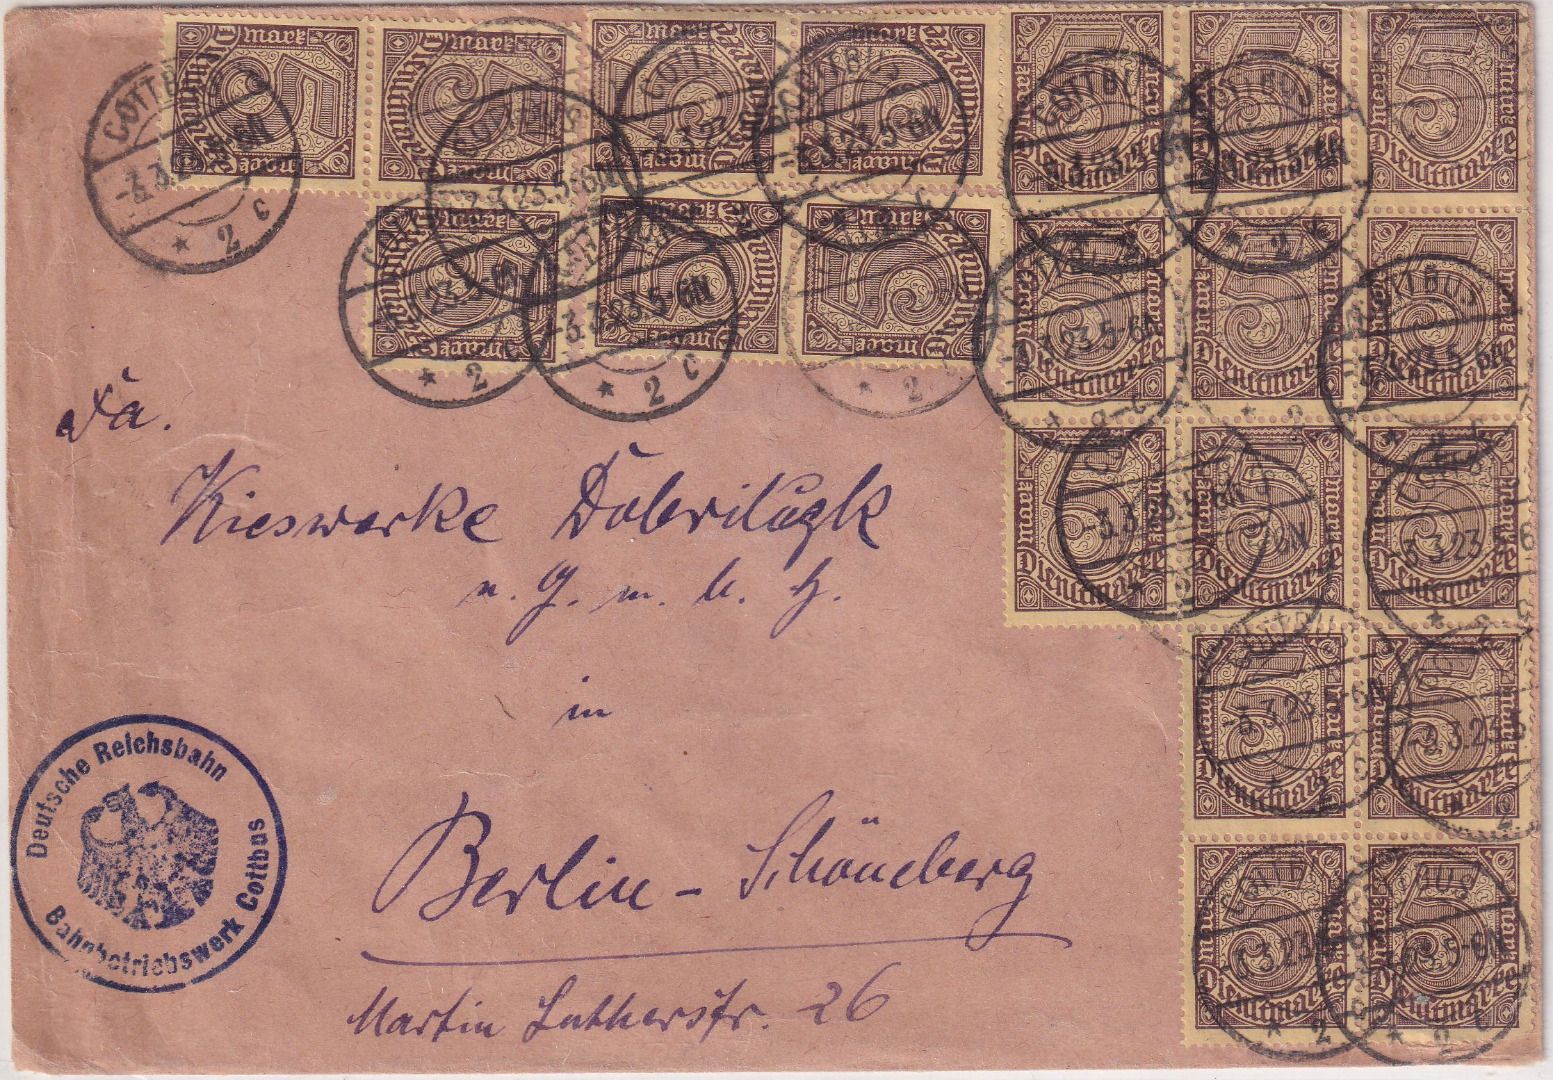 Fa.
Kieswerke Dobrilugk
m. b. H.
in
Berlin - Schöneberg
Martin Lutherstr. 26
Deutsche Reichsbahn
Bahnbetriebswerk Cottbus
5
Mark
Dienstmarke
COTTBUS
-3.3.23.5-6N
* 2 c